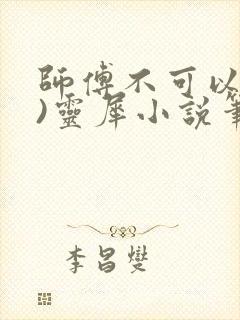 師傅不可以
)靈犀小說筆
李昌燮